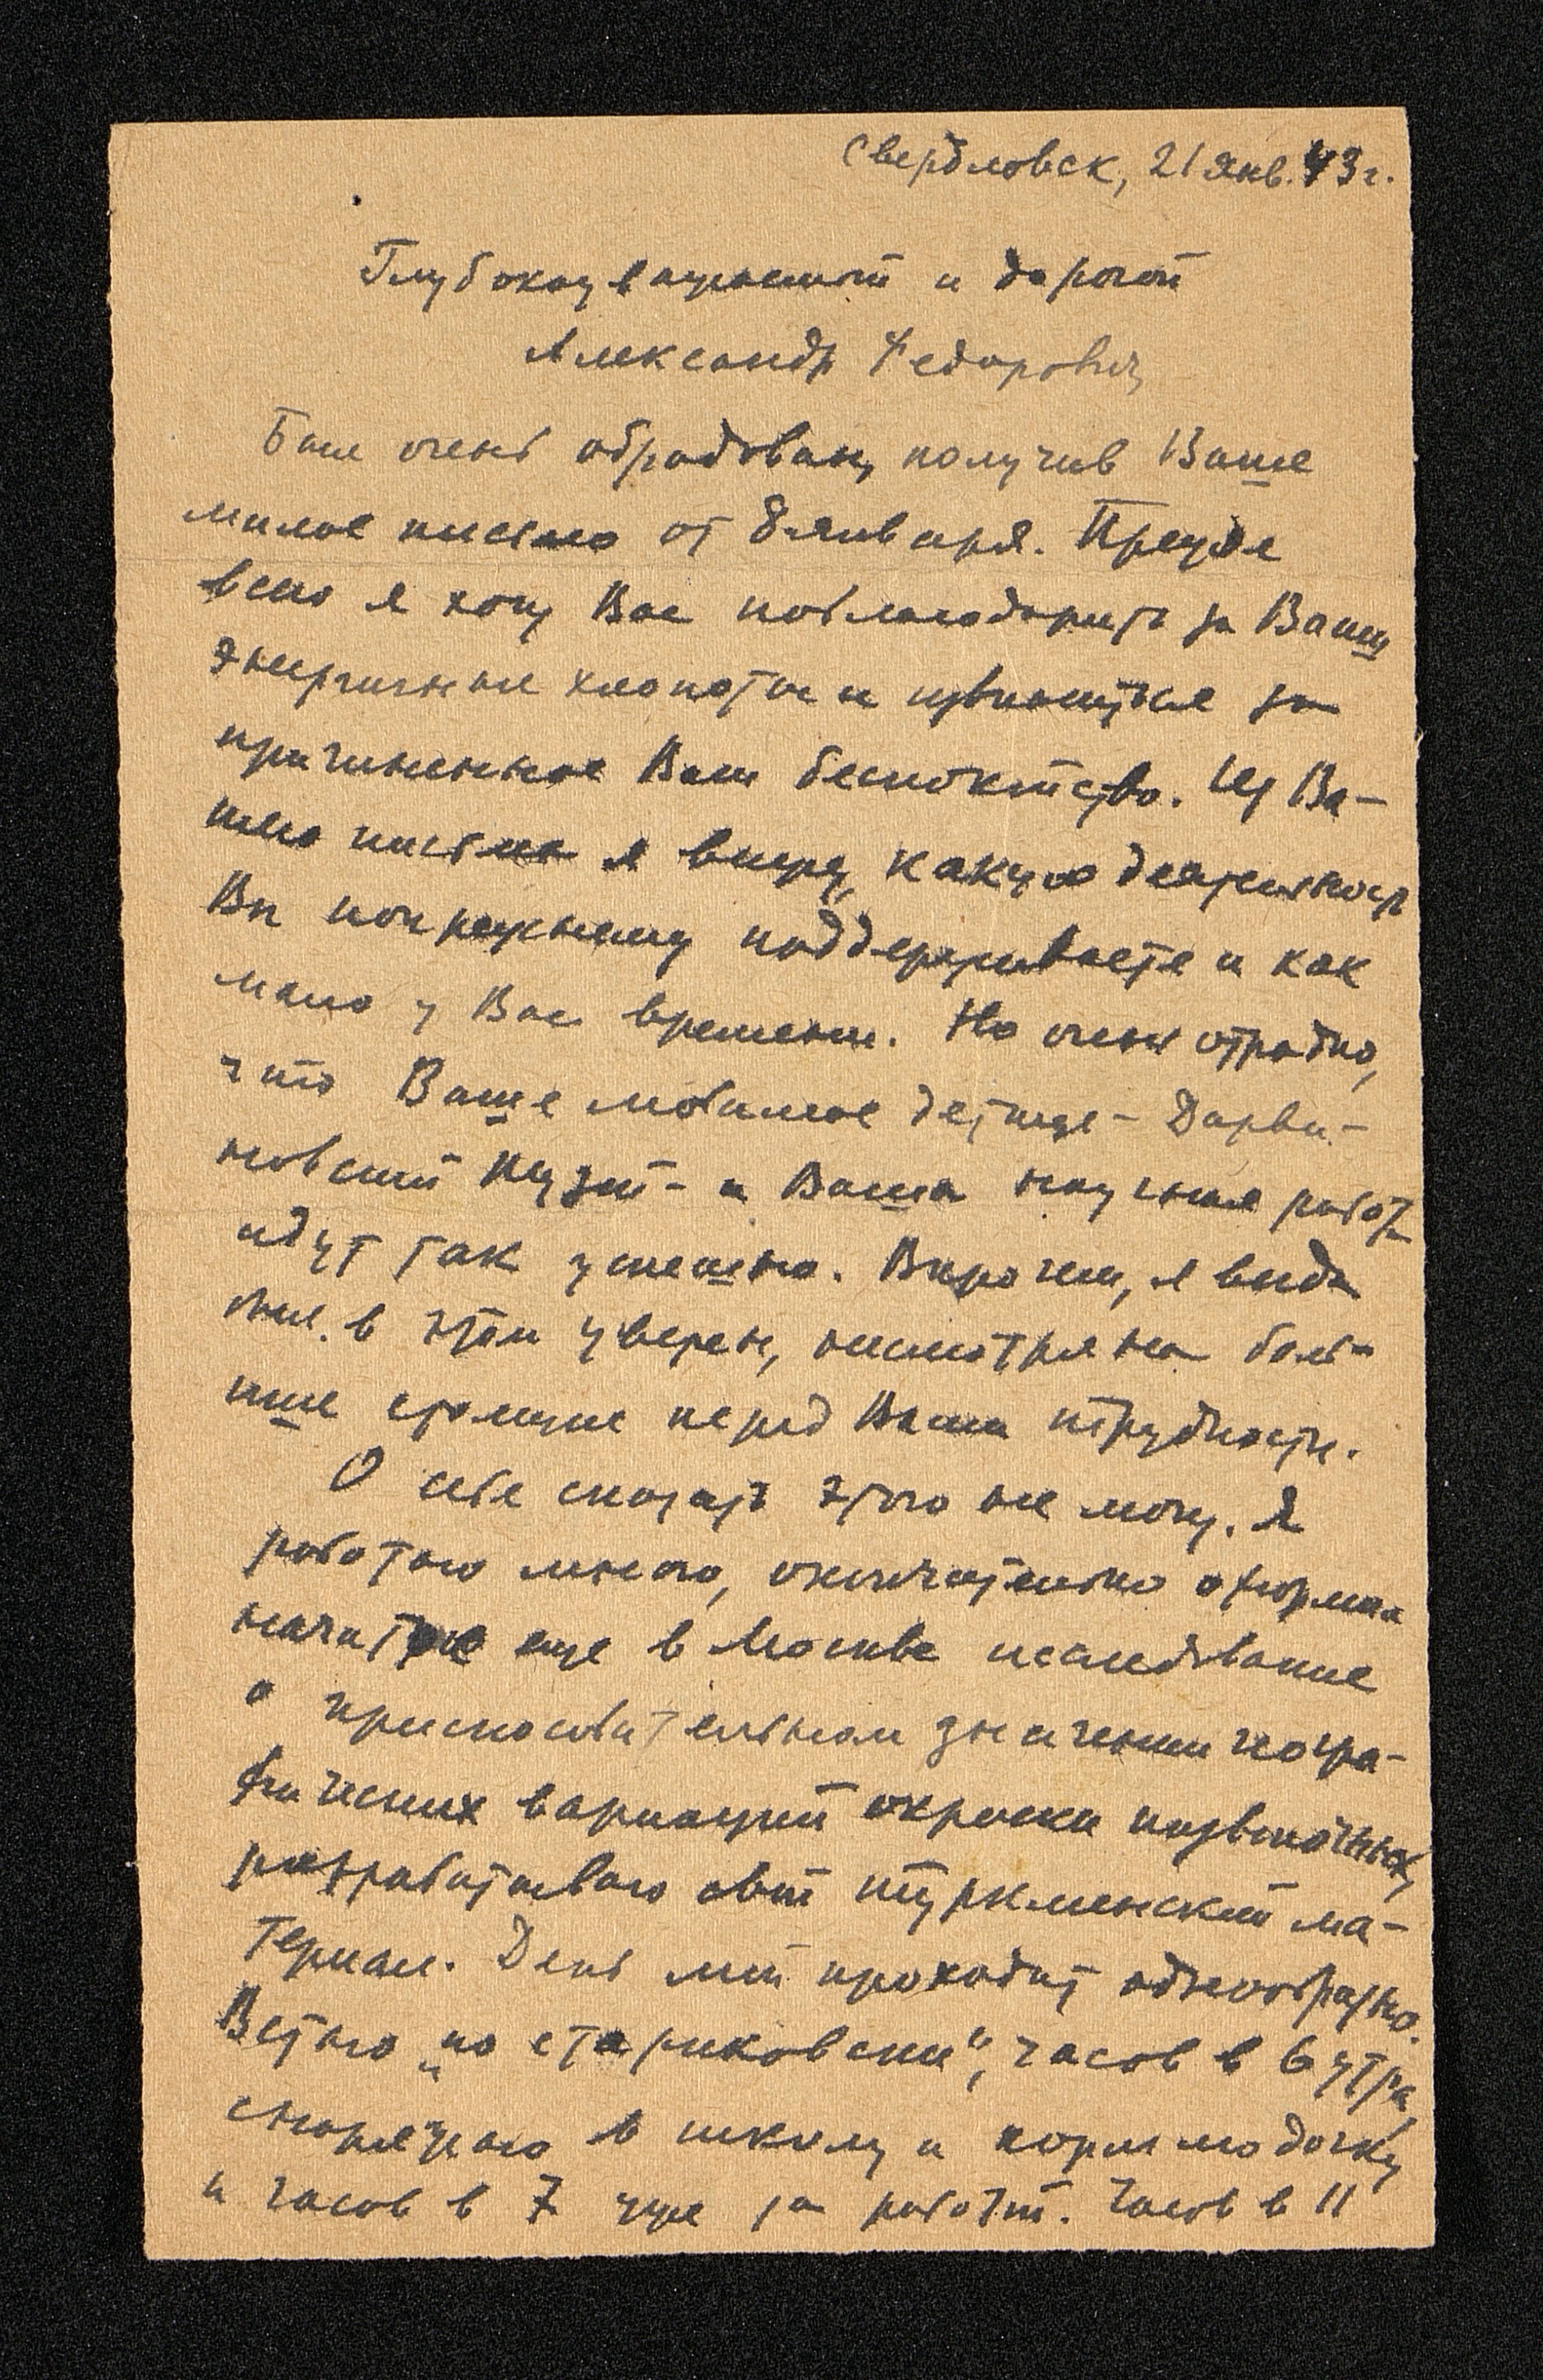 Свердловск, 21 янв. 43 г.
Глубокоуважаемый и дорогой
Александр Федорович
Был очень обрадован, получив Ваше
милое письмо от 8 января. Прежде
всего я хочу Вас поблагодарить за Ваши
энергичные хлопоты и извиниться за
причиненное Вам беспокойство. Из Ва-
шего письма я вижу, какую деятельность
Вы по прежнему поддерживаете и как
мало у Вас времени. Но очень отрадно,
что Ваше любимое детище – Дарви-
новский музей – и Ваша научная работа
идут так успешно. Впрочем, я всегда
был в этом уверен, несмотря на боль-
шие стоящие перед Вами трудности.
О себе сказать этого не могу. Я
работаю много, окончательно оформил
начатое еще в Москве исследование
о приспособительном значении геогра-
фических вариаций окраски позвоночных,
разрабатываю свой туркменский ма-
териал. День мой проходит однообразно.
Встаю „по стариковски", часов в 6 утра,
снаряжаю в школу и кормлю дочку
и часов в 7 уже за работой. Часов в 11